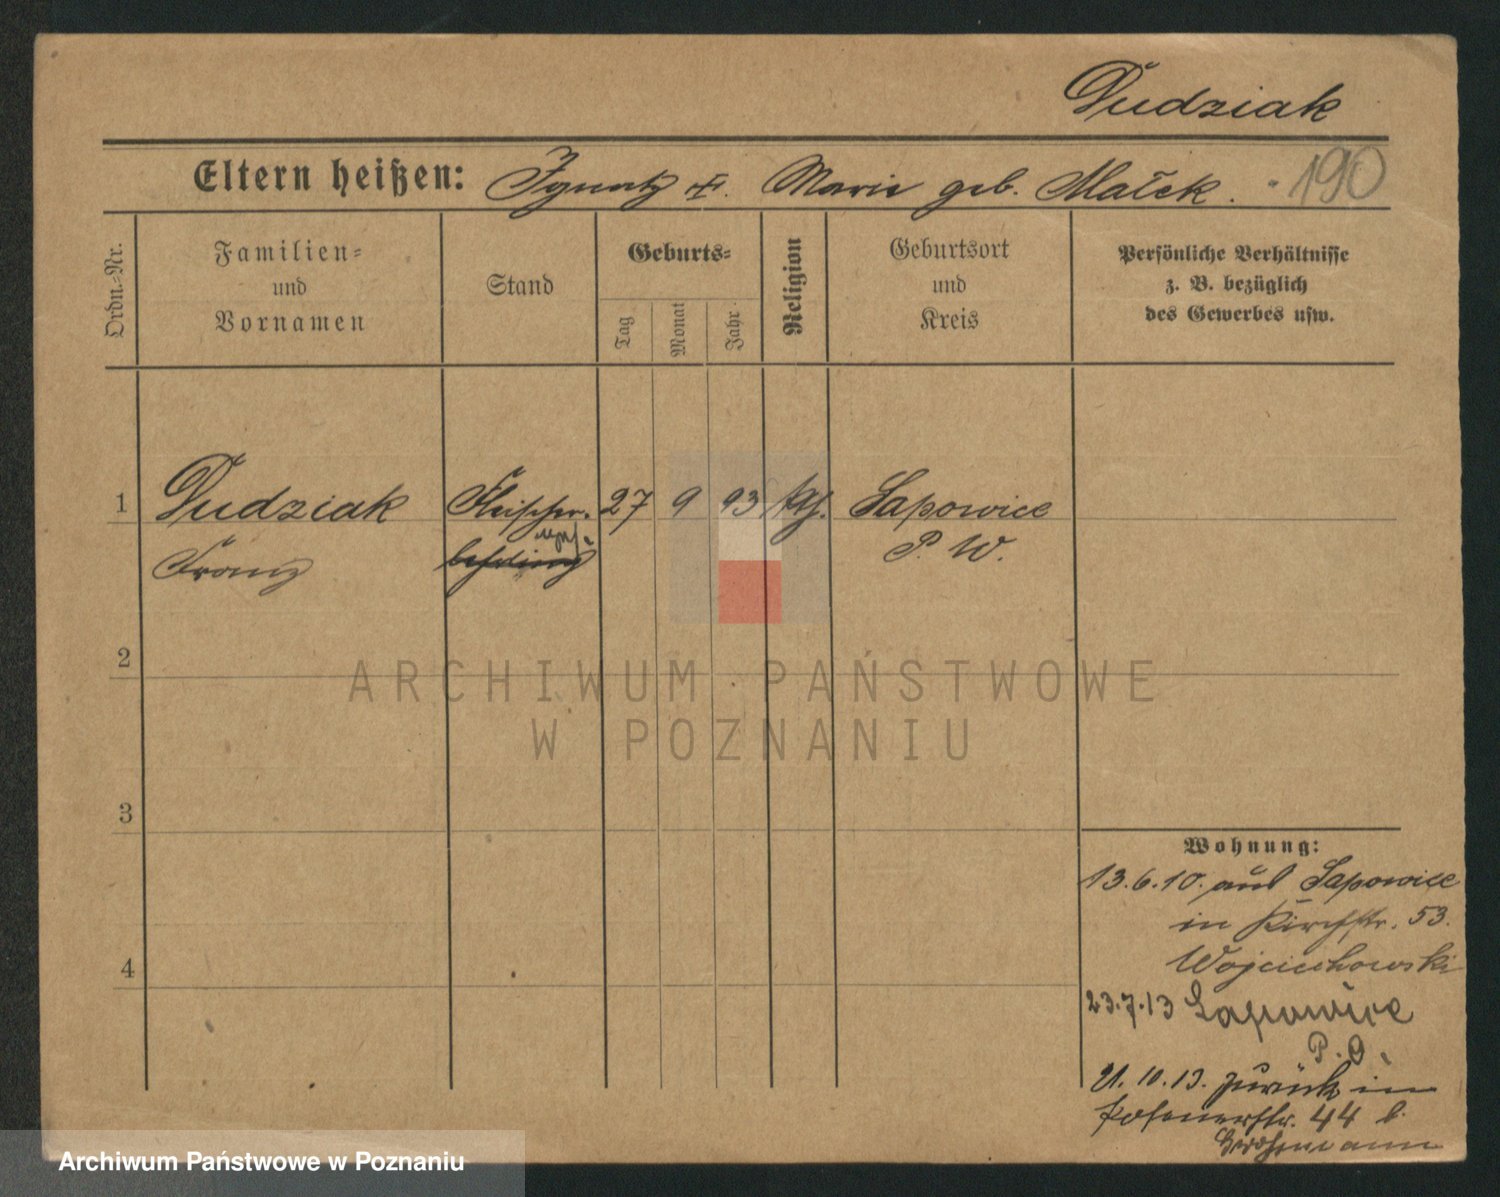 Dudziak
Eltern heißen: Ignatz u. Marie geb. Małek. 190
Ordn.-Nr.
Familien-
und
Vornamen
Stand
Geburts-
Tag
Monat
Jahr
Religion
Geburtsort
und
Kreis
Persönliche Verhältnisse
z. B. bezüglich
des Gewerbes usw.
1 Dudziak Fleischer- 27 9 93 kth. Sapowice
Franz lehrling P. W.
2
ARCHIWUM PAŃSTWOWE
W POZNANIU
3
4
Wohnung:
13.6.10. aus Sapowice
in Kirchstr. 53.
Wojciechowski
23.7.13 Sapowice
P. O.
21.10.13. zurück in
Posenerstr. 44 b.
Archiwum Państwowe w Poznaniu